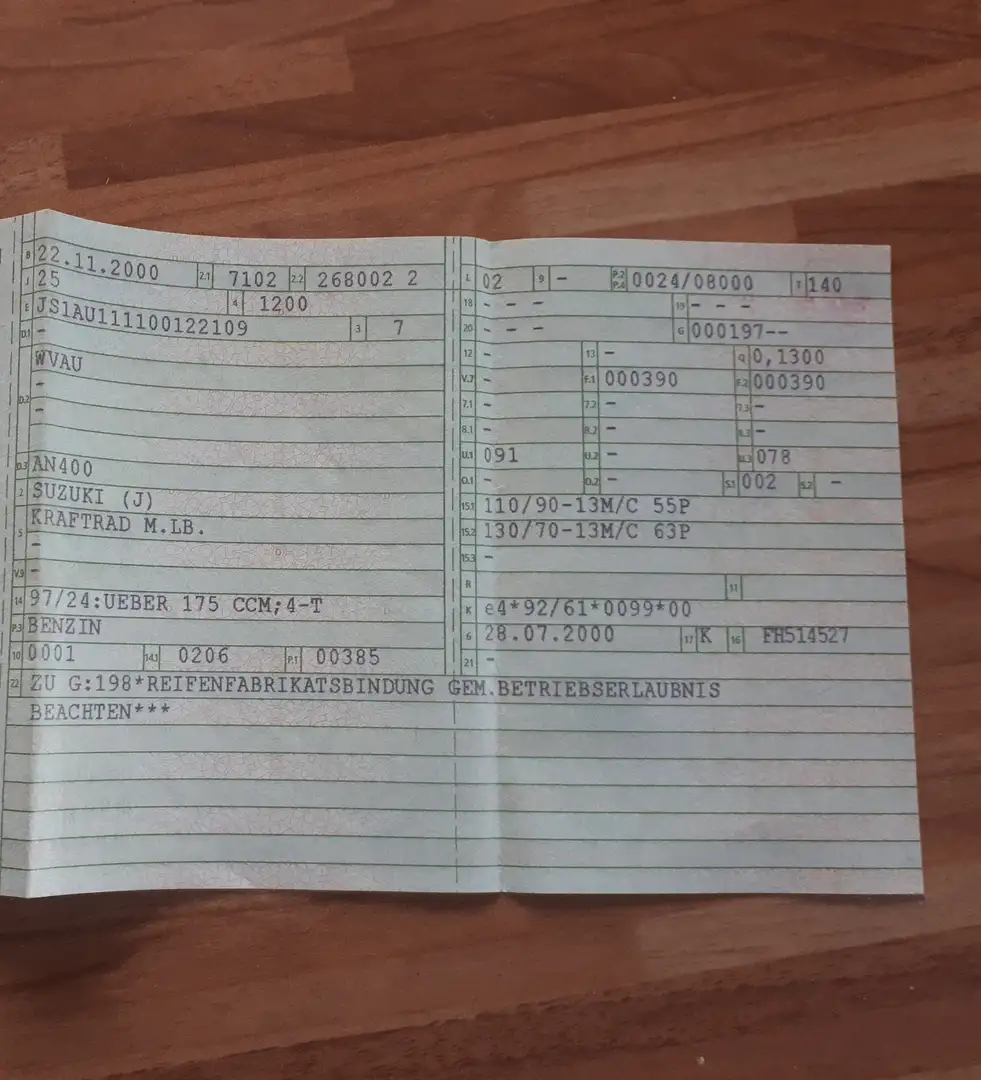 B 22.11.2000 2.1 7102 2.2 268002 2
J 25 4 1200
E JS1AU111100122109 3 7
D.1 -
WVAU
D.2 -
-
D.3 AN400
2 SUZUKI (J)
5 KRAFTRAD M.LB.
-
V.9 -
14 97/24:UEBER 175 CCM;4-T
P.3 BENZIN
10 0001 14.1 0206 P.1 00385
L 02 9 - P.2 P.4 0024/08000 T 140
18 - - - 19 - - -
20 - - - G 000197--
12 - 13 - Q 0,1300
V.7 - F.1 000390 F.2 000390
7.1 - 7.2 - 7.3 -
8.1 - 8.2 - 8.3 -
U.1 091 U.2 - U.3 078
O.1 - O.2 - S.1 002 S.2 -
15.1 110/90-13M/C 55P
15.2 130/70-13M/C 63P
15.3 -
R 11
K e4*92/61*0099*00
6 28.07.2000 17 K 16 FH514527
21 -
22 ZU G:198*REIFENFABRIKATSBINDUNG GEM.BETRIEBSERLAUBNIS
BEACHTEN***